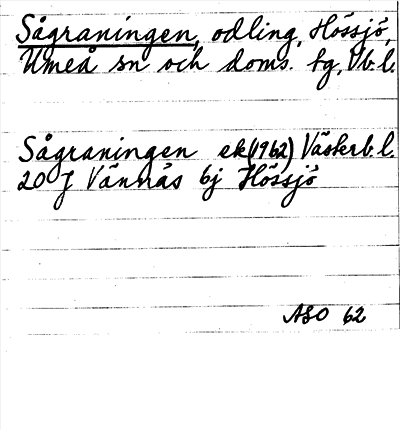 Sågraningen, odling, Hössjö,
Umeå sn och doms. fg, Vb. l.
Sågraningen ek(1962) Västerb. l.
20 J Vännäs bj Hössjö
ASO 62